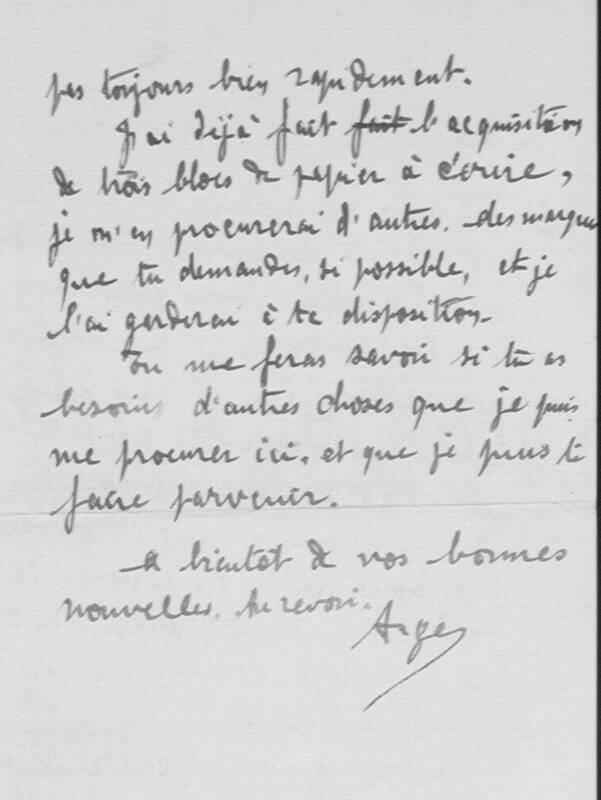 pas toujours bien rapidement.
J'ai déjà fait fait l'acquisition
de trois blocs de papier à écrire,
je m'en procurerai d'autres. des marques
que tu demandes, si possible, et je
l'ai garderai à ta disposition.
Tu me feras savoir si tu as
besoins d'autres choses que je puis
me procurer ici. et que je puis te
faire parvenir.
A bientôt de vos bonnes
nouvelles. Au revoir.